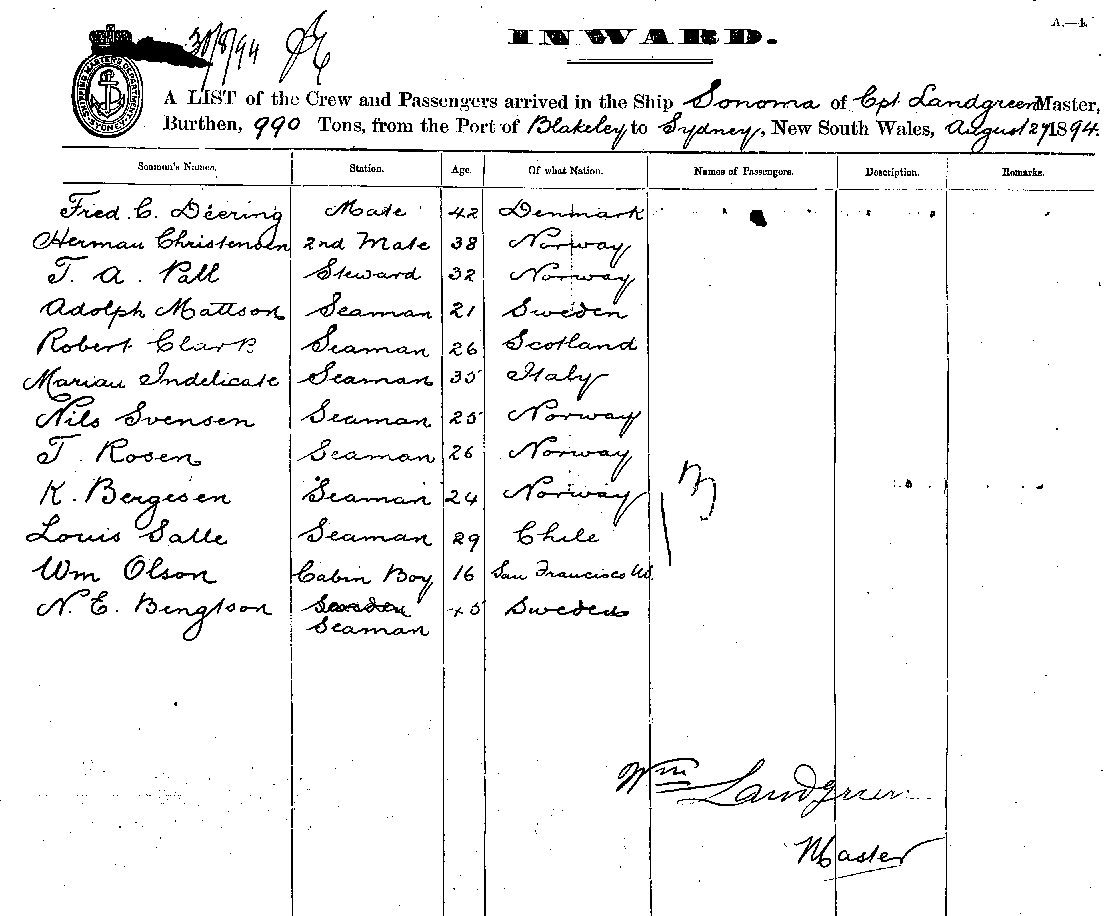 A.—4.
30/8/94
INWARD.
SHIPPING MASTER'S DEPARTMENT SYDNEY
A LIST of the Crew and Passengers arrived in the Ship Sonoma of Cpt Landgreen Master,
Burthen, 990 Tons, from the Port of Blakeley to Sydney, New South Wales, August 27 1894.
Seaman's Names. Station. Age. Of what Nation. Names of Passengers. Description. Remarks.
Fred. C. Deering Mate 42 Denmark
Herman Christensen 2nd Mate 38 Norway
T. A. Pall Steward 32 Norway
Adolph Mattson Seaman 21 Sweden
Robert Clark Seaman 26 Scotland
Mariau Indelicate Seaman 35 Italy
Nils Svensen Seaman 25 Norway
T. Rosen Seaman 26 Norway
K. Bergesen Seaman 24 Norway
Louis Salle Seaman 29 Chile
Wm Olson Cabin Boy 16 San Francisco US.
N. E. Bengtson Sweden 45 Sweden
Seaman
13
Wm Landgreen
Master